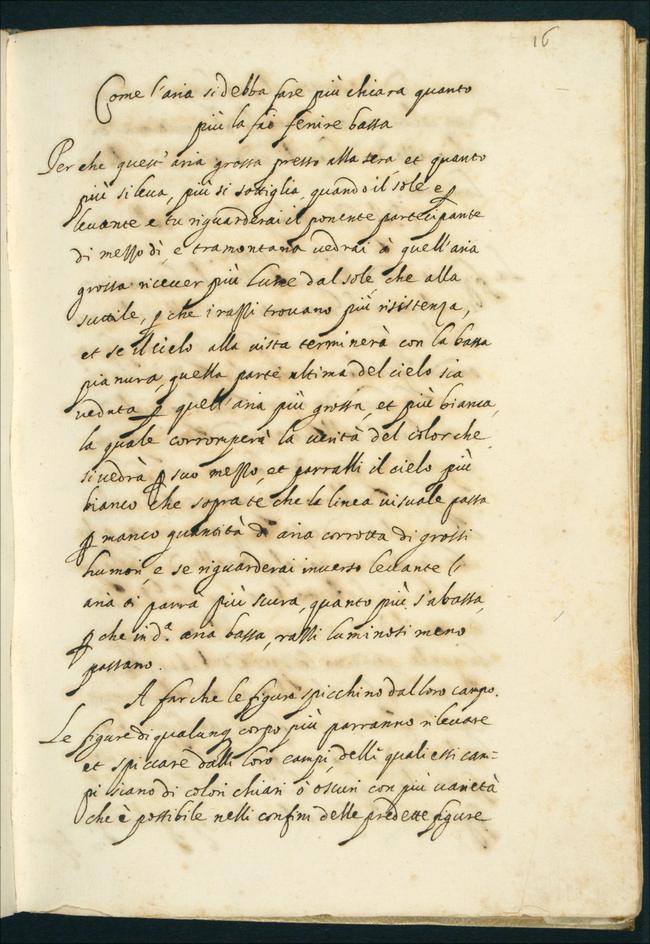 16
Come l'aria si debba fare più chiara quanto
più la fai fenire bassa
Per che quest'aria grossa presso alla sera, et quanto
più si leva, più si sottiglia, quando il sole è
levante e tu riguarderai il ponente participante
di messo dì, e tramontana vedrai à quell'aria
grossa ricever più luce dal sole, che alla
suttile, ꝑ che i rassi trouano più risistenza,
et se il cielo alla uista terminerà con la bassa
pianura, quella parte ultima del cielo sia
ueduta ꝑ quell'aria più grossa, et più bianca,
la quale corromperà la uerità del color che
si uedrà ꝑ suo messo, et parratti il cielo più
bianco che sopra te che la linea uisuale passa
ꝑ manco quantità di aria corrotta di grossi
humori, e se riguarderai inuerso leuante l'
aria ti parrà più scura, quanto più s'abassa,
ꝑ che in dª. aria bassa, rassi luminosi meno
passano.
A far che le figure spicchino dal loro campo.
Le figure di qualunq corpo più parranno rileuare
et spiccare dalli loro campi, delli quali essi cam=
pi siano di colori chiari ò oscuri con più uarietà
che è possibile nelli confini delle predette figure